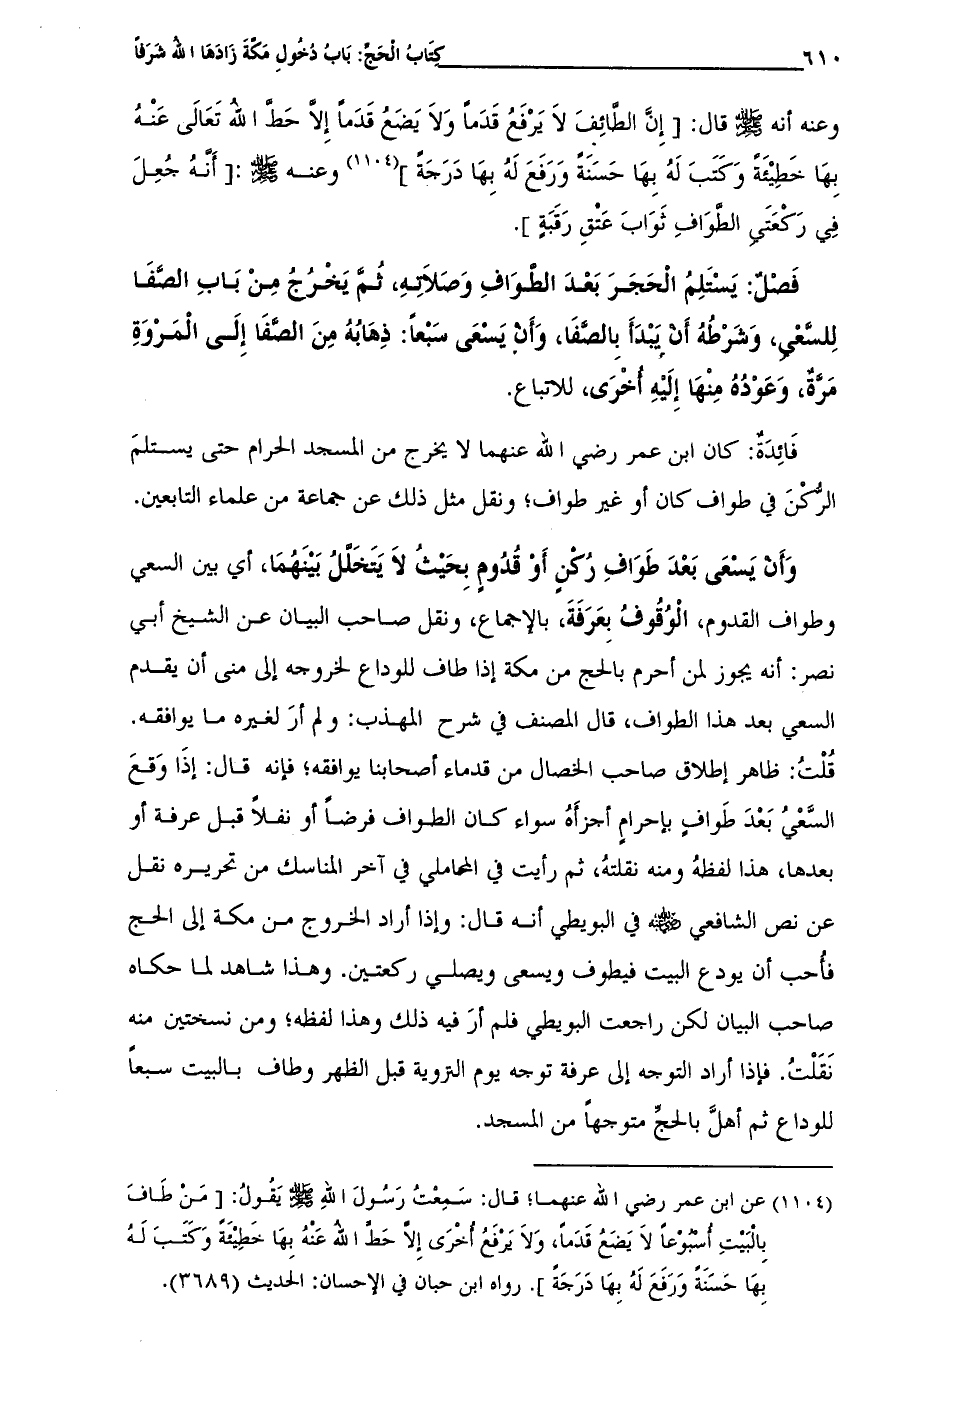 ٦١٠ كِتَابُ الْحَجِّ: بَابُ دُخُولِ مَكَّةَ زَادَهَا اللهُ شَرَفاً
وعنه أنه ﷺ قال: [ إِنَّ الطَّائِفَ لاَ يَرْفَعُ قَدَماً وَلاَ يَضَعُ قَدَماً إِلاَّ حَطَّ اللهُ تَعَالَى عَنْهُ
بِهَا خَطِيْئَةً وَكَتَبَ لَهُ بِهَا حَسَنَةً وَرَفَعَ لَهُ بِهَا دَرَجَةً ](١١٠٤) وعنه ﷺ :[ أَنَّهُ جُعِلَ
فِي رَكْعَتَيِ الطَّوَافِ ثَوَابَ عَتْقِ رَقَبَةٍ ].
فَصْلٌ: يَسْتَلِمُ الْحَجَرَ بَعْدَ الطَّوَافِ وَصَلاَتِهِ، ثُمَّ يَخْرُجُ مِنْ بَابِ الصَّفَا
لِلسَّعْيِ، وَشَرْطُهُ أَنْ يَبْدَأَ بِالصَّفَا، وَأَنْ يَسْعَى سَبْعاً: ذِهَابُهُ مِنَ الصَّفَا إِلَى الْمَرْوَةِ
مَرَّةٌ، وَعَوْدُهُ مِنْهَا إِلَيْهِ أُخْرَى، للاتباع.
فَائِدَةٌ: كان ابن عمر رضي الله عنهما لا يخرج من المسجد الحرام حتى يستلمَ
الرُّكْنَ في طواف كان أو غير طواف؛ ونقل مثل ذلك عن جماعة من علماء التابعين.
وَأَنْ يَسْعَى بَعْدَ طَوَافِ رُكْنٍ أَوْ قُدُومٍ بِحَيْثُ لاَ يَتَخَلَّلُ بَيْنَهُمَا، أي بين السعي
وطواف القدوم، الْوُقُوفُ بِعَرَفَةَ، بالإجماع، ونقل صاحب البيان عن الشيخ أبي
نصر: أنه يجوز لمن أحرم بالحج من مكة إذا طاف للوداع لخروجه إلى منى أن يقدم
السعي بعد هذا الطواف، قال المصنف في شرح المهذب: ولم أرَ لغيره ما يوافقه.
قُلْتُ: ظاهر إطلاق صاحب الخصال من قدماء أصحابنا يوافقه؛ فإنه قال: إِذَا وَقعَ
السَّعْيُ بَعْدَ طَوَافٍ بإحرامٍ أجزأهُ سواء كان الطواف فرضاً أو نفلاً قبل عرفة أو
بعدها، هذا لفظهُ ومنه نقلتهُ، ثم رأيت في المحاملي في آخر المناسك من تحريره نقل
عن نص الشافعي ﷺ في البويطي أنه قال: وإذا أراد الخروج من مكة إلى الحج
فأُحب أن يودع البيت فيطوف ويسعى ويصلي ركعتين. وهذا شاهد لما حكاه
صاحب البيان لكن راجعت البويطي فلم أرَ فيه ذلك وهذا لفظه؛ ومن نسختين منه
نَقَلْتُ. فإذا أراد التوجه إلى عرفة توجه يوم التروية قبل الظهر وطاف بالبيت سبعاً
للوداع ثم أهلَّ بالحجِّ متوجهاً من المسجد.
(١١٠٤) عن ابن عمر رضي الله عنهما؛ قال: سَمِعْتُ رَسُولَ اللهِ ﷺ يَقُولُ: [ مَنْ طَافَ
بِالْبَيْتِ أُسْبُوْعاً لاَ يَضَعُ قَدَماً، وَلاَ يَرْفَعُ أُخْرَى إِلاَّ حَطَّ اللهُ عَنْهُ بِهَا خَطِيْئَةً وَكَتَبَ لَهُ
بِهَا حَسَنَةً وَرَفَعَ لَهُ بِهَا دَرَجَةً ]. رواه ابن حبان في الإحسان: الحديث (٣٦٨٩).